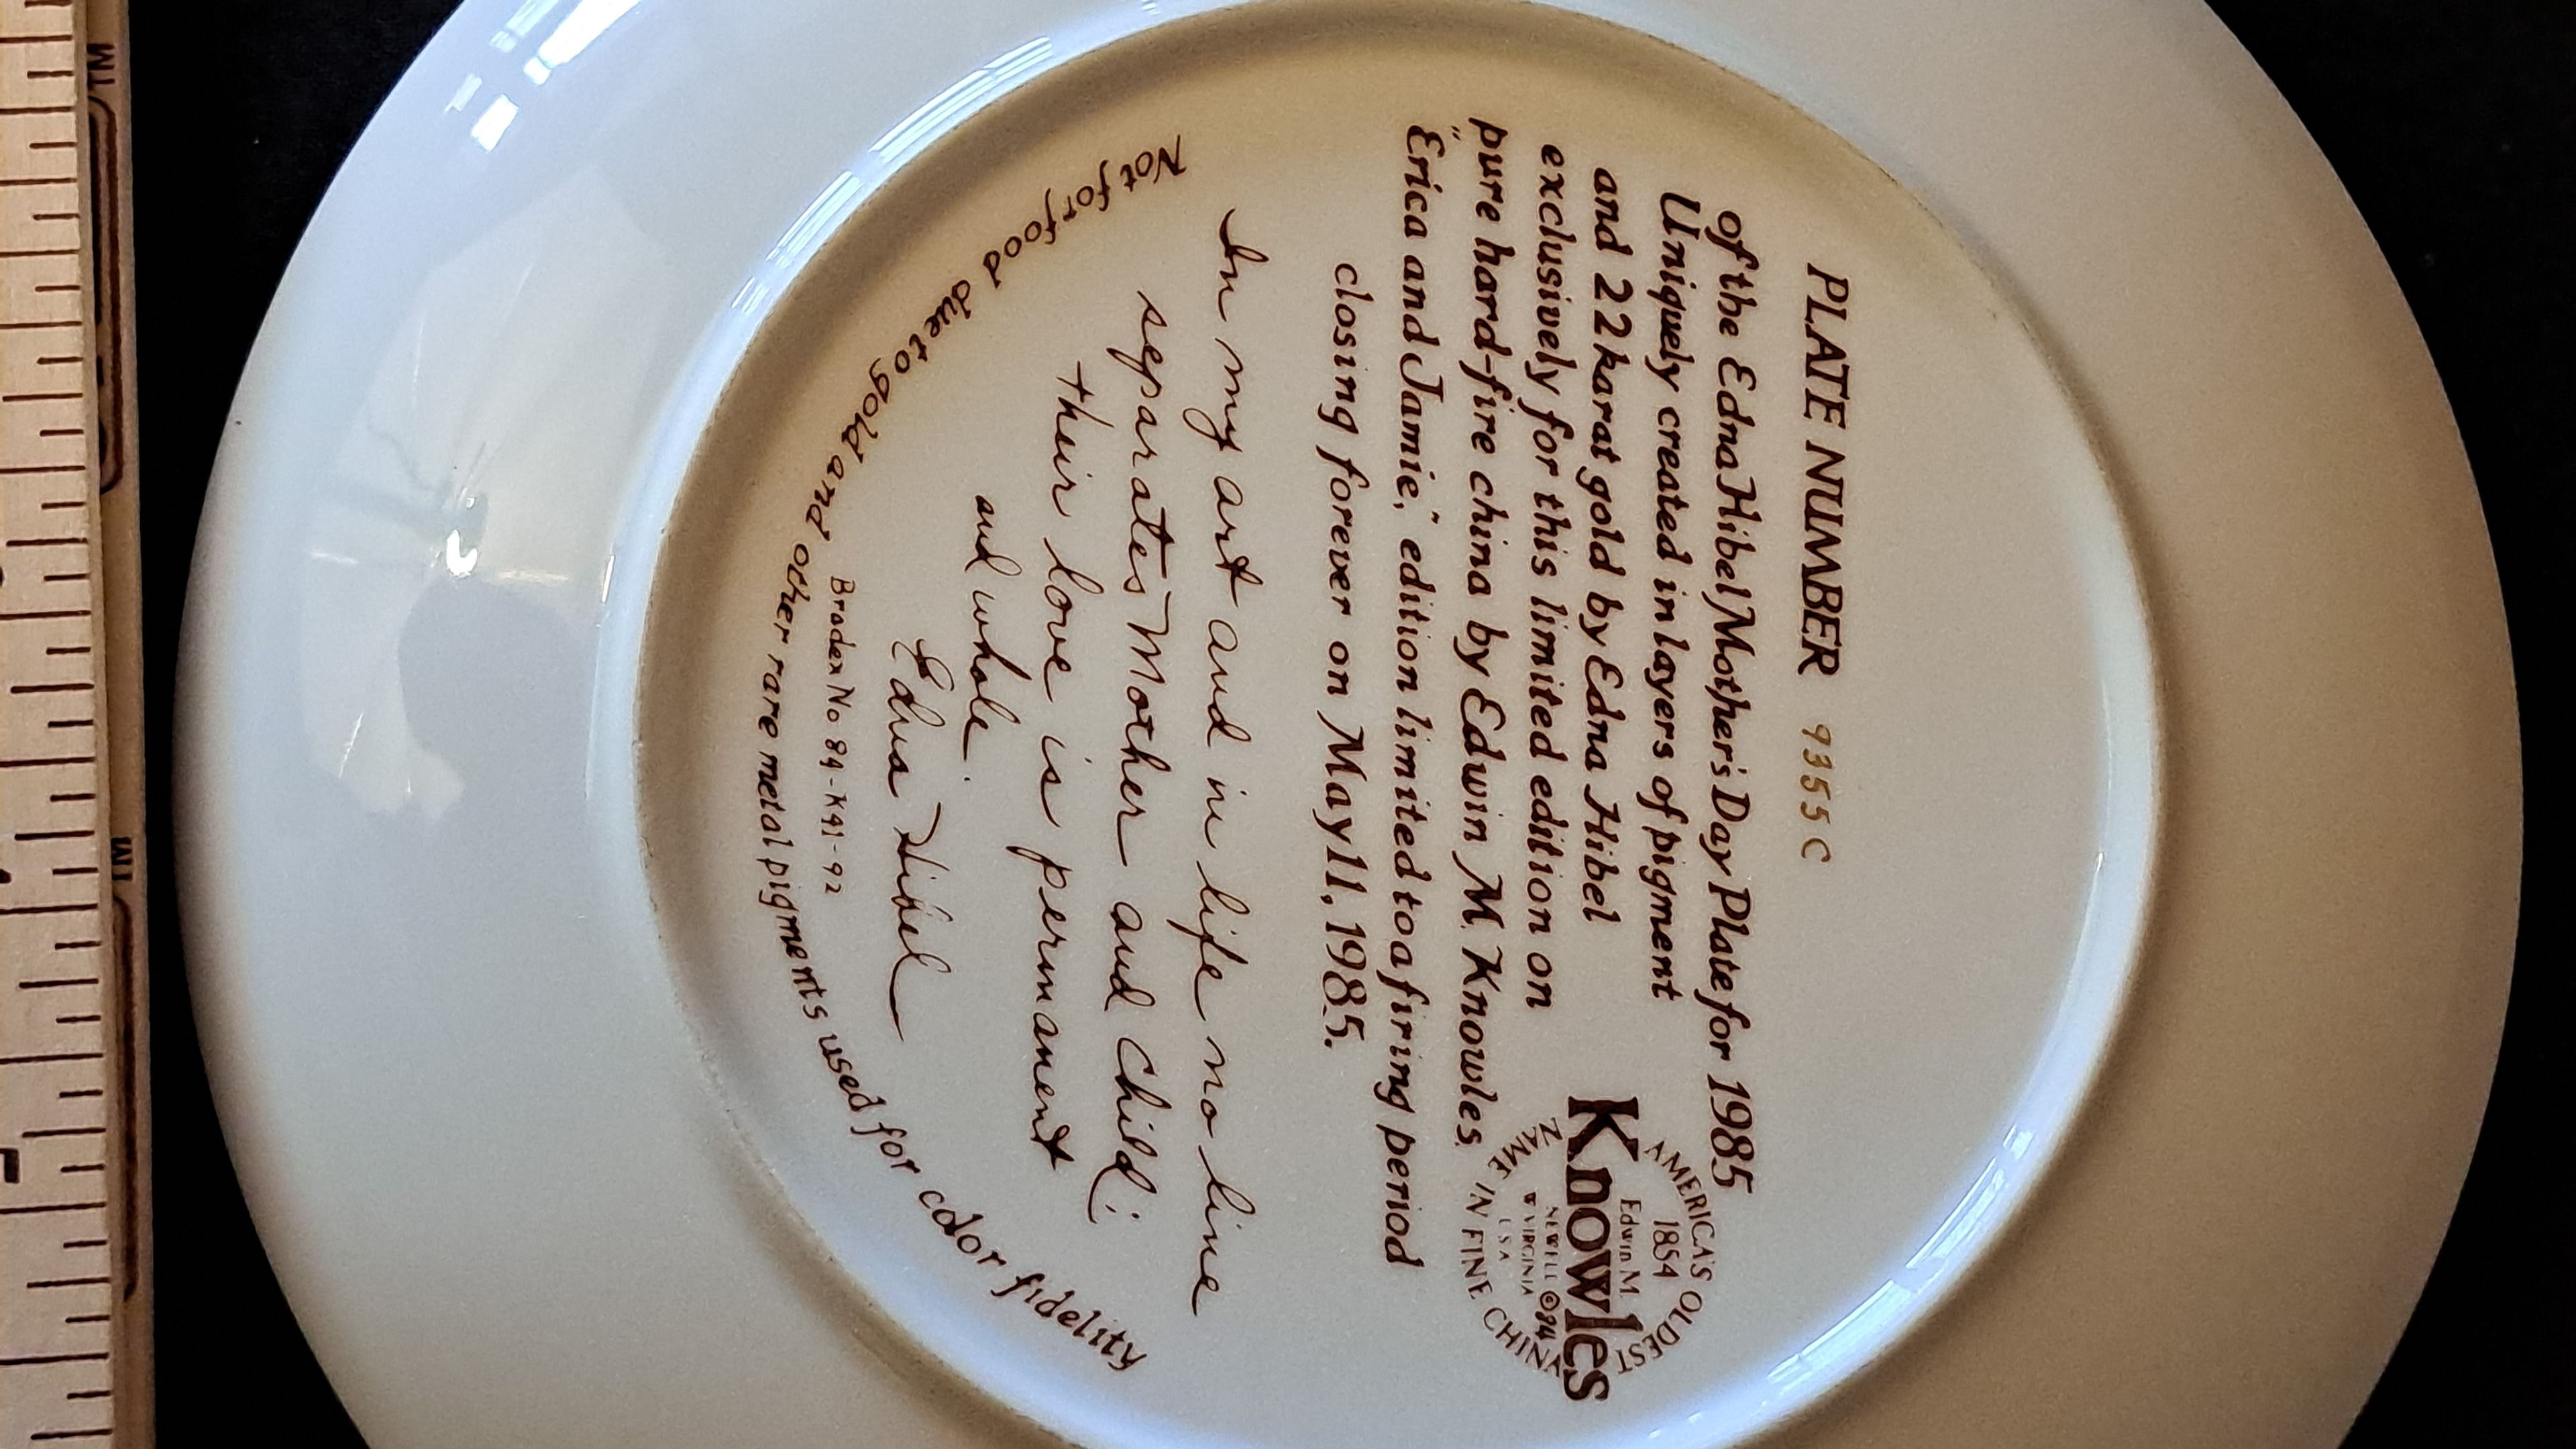 PLATE NUMBER 9355C
of the Edna Hibel Mother's Day Plate for 1985
Uniquely created in layers of pigment
and 22 karat gold by Edna Hibel
exclusively for this limited edition on
pure hard-fire china by Edwin M. Knowles.
"Erica and Jamie," edition limited to a firing period
closing forever on May 11, 1985.
AMERICA'S OLDEST
1854
Edwin M.
Knowles
NEWELL ©84
W VIRGINIA
U S A
NAME IN FINE CHINA
In my art and in life no line
separates Mother and Child:
their love is permanent
and whole.
Edna Hibel
Bradex No 84-K41-92
Not for food due to gold and other rare metal pigments used for color fidelity
TM
TM